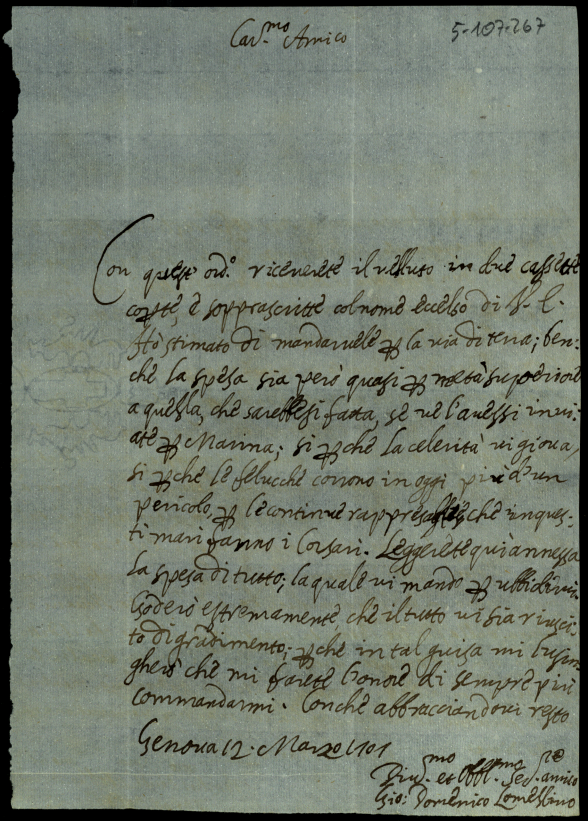 Car.mo Amico
5-107-267
Con quest' ord.o riceverete il velluto in due cassette
coperte, e soprascritte col nome eccelso di S. E.
Hò stimato di mandarvele per la via di terra; ben-
che la spesa sia però quasi per metà superiore
a quella, che sarebbesi fatta, se ve l'avessi invi-
ate per Marina; si perche la celerità vi giova,
si perche le felucche corrono in oggi più d'un
pericolo, per le continue rappresaglie, che in ques-
ti mari fanno i Corsari. Leggerete quì annessa
la spesa di tutto; la quale vi mando per ubbidirvi.
Goderò estremamente che il tutto vi sia riusci-
to di gradimento; perche in tal guisa mi lusin-
gherò che mi farete l'onore di sempre più
commandarmi. Con che abbracciandovi resto
Genova 12. Marzo 1701
Div.mo et obbl.mo Ser.re amico
Gio: Domenico Lomellino